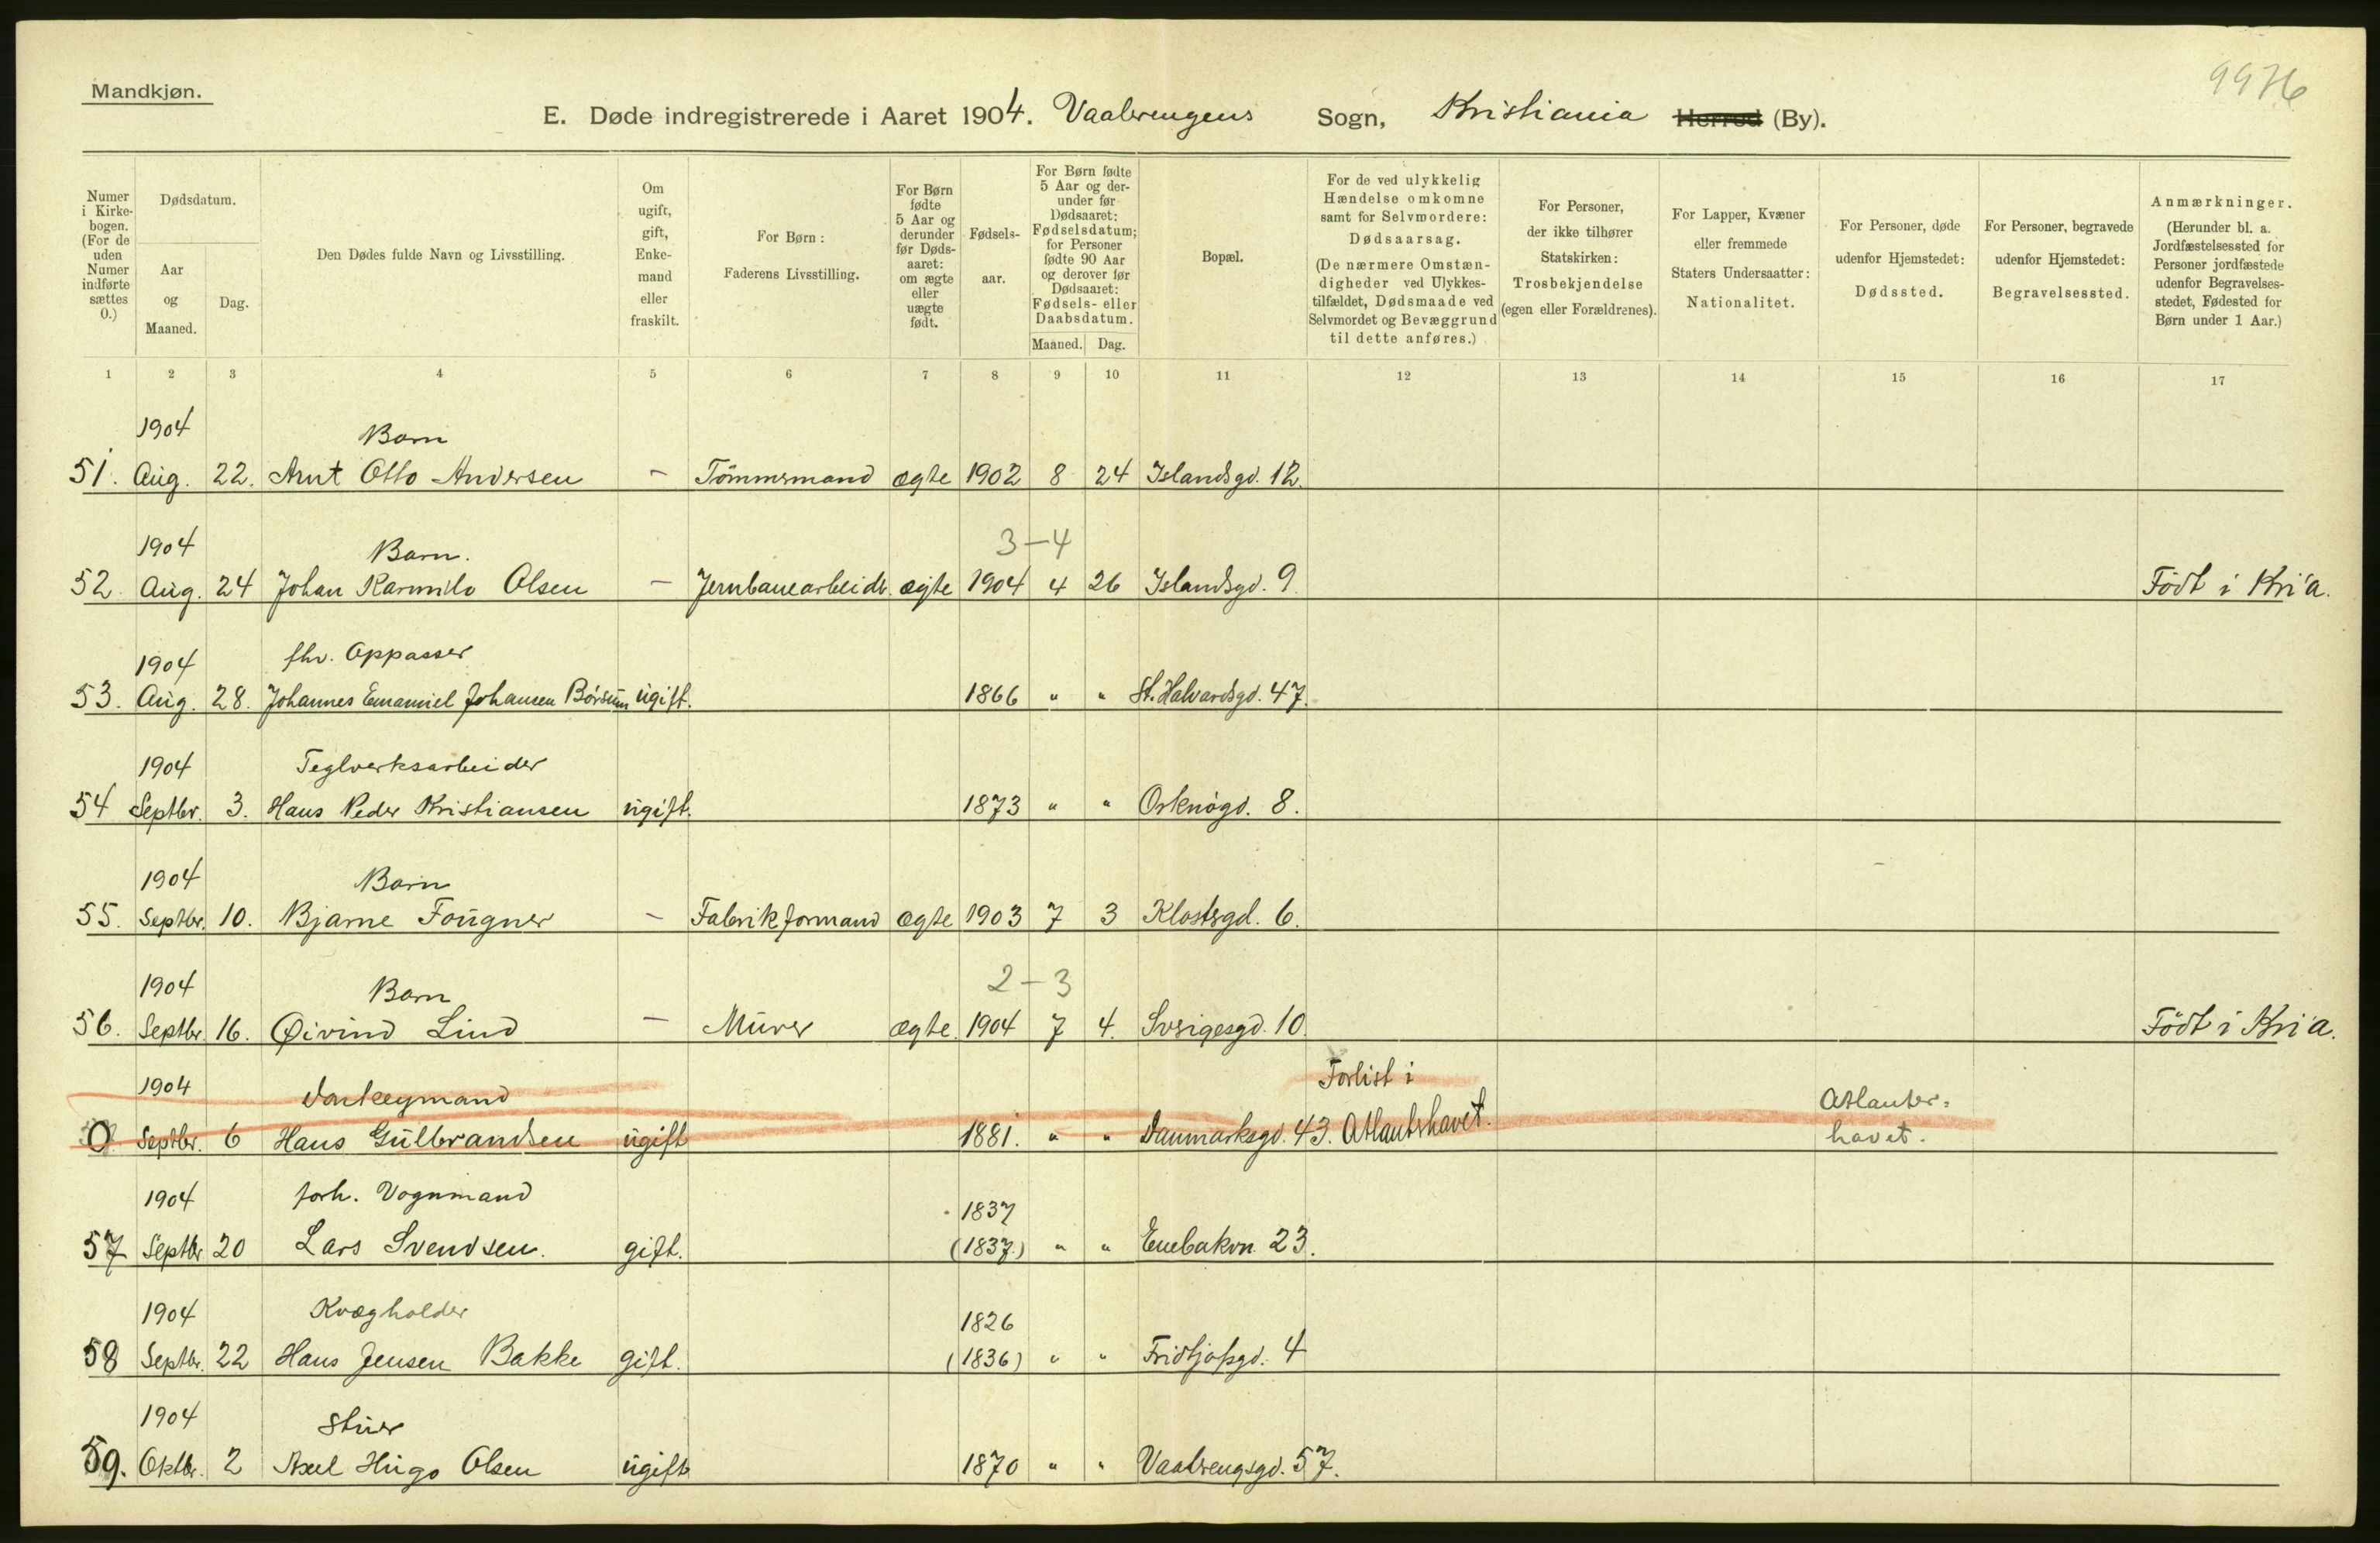 9976
Mandkjøn.
E. Døde indregistrerede i Aaret 1904. Vaalerengens Sogn, Kristiania Herred (By).
Numer i Kirkebogen. (For de uden Numer indførte sættes 0.)
Dødsdatum.
Aar og Maaned.
Dag.
Den Dødes fulde Navn og Livsstilling.
Om ugift, gift, Enkemand eller fraskilt.
For Børn: Faderens Livsstilling.
For Børn fødte 5 Aar og derunder før Dødsaaret: om ægte eller uægte født.
Fødselsaar.
For Børn fødte 5 Aar og derunder før Dødsaaret: Fødselsdatum; for Personer fødte 90 Aar og derover før Dødsaaret: Fødsels- eller Daabsdatum.
Maaned. Dag.
Bopæl.
For de ved ulykkelig Hændelse omkomne samt for Selvmordere: Dødsaarsag. (De nærmere Omstændigheder ved Ulykkestilfældet, Dødsmaade ved Selvmordet og Bevæggrund til dette anføres.)
For Personer, der ikke tilhører Statskirken: Trosbekjendelse (egen eller Forældrenes).
For Lapper, Kvæner eller fremmede Staters Undersaatter: Nationalitet.
For Personer, døde udenfor Hjemstedet: Dødssted.
For Personer, begravede udenfor Hjemstedet: Begravelsessted.
Anmærkninger. (Herunder bl. a. Jordfæstelsessted for Personer jordfæstede udenfor Begravelsesstedet, Fødested for Børn under 1 Aar.)
1 2 3 4 5 6 7 8 9 10 11 12 13 14 15 16 17
1904 Barn
51. Aug. 22. Arnt Otto Andersen - Tømmermand ægte 1902 8 24 Islandsgd. 12.
1904 Barn. 3-4
52 Aug. 24 Johan Karmilo Olsen - Jernbanearbeidr. ægte 1904 4 26 Islandsgd. 9. Født i Kri'a.
1904 fhv. Oppasser
53. Aug. 28. Johannes Emanuel Johansen Børsum ugift. 1866 " " St. Halvardsgd. 47.
1904 Teglverksarbeider
54 Septbr. 3. Hans Peder Kristiansen ugift. 1873 " " Orknøgd. 8.
1904 Barn
55. Septbr. 10. Bjarne Fougner - Fabrikformand ægte 1903 7 3 Klostergd. 6.
1904 Barn 2-3
56. Septbr. 16. Øivind Lind - Murer ægte. 1904 7 4. Sverigesgd. 10. Født i Kri'a.
1904 Donkeymand Forlist i Atlanter-
0 Septbr. 6 Hans Gulbrandsen ugift 1881. " " Danmarksgd. 43. Atlantshavet. havet.
1904 forh. Vognmand 1837
57 Septbr 20 Lars Svendsen. gift. (1837.) " " Enebakvn. 23.
1904 Kvægholder 1826
58 Septbr. 22 Hans Jensen Bakke gift. (1836) " " Fridtjofsgd. 4
1904 Stuer
59. Oktbr. 2 Axel Hugo Olsen ugift 1870 " " Vaalrengsgd. 57.